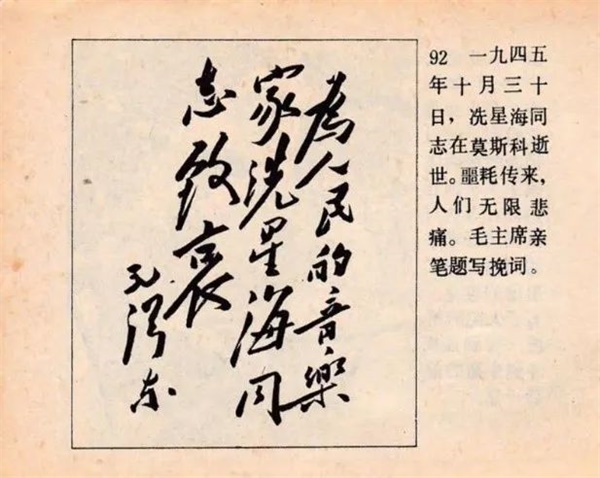 為人民的音樂
家洗星海同
志致哀
毛澤东
92 一九四五
年十月三十
日，冼星海同
志在莫斯科逝
世。噩耗传来，
人们无限悲
痛。毛主席亲
笔题写挽词。